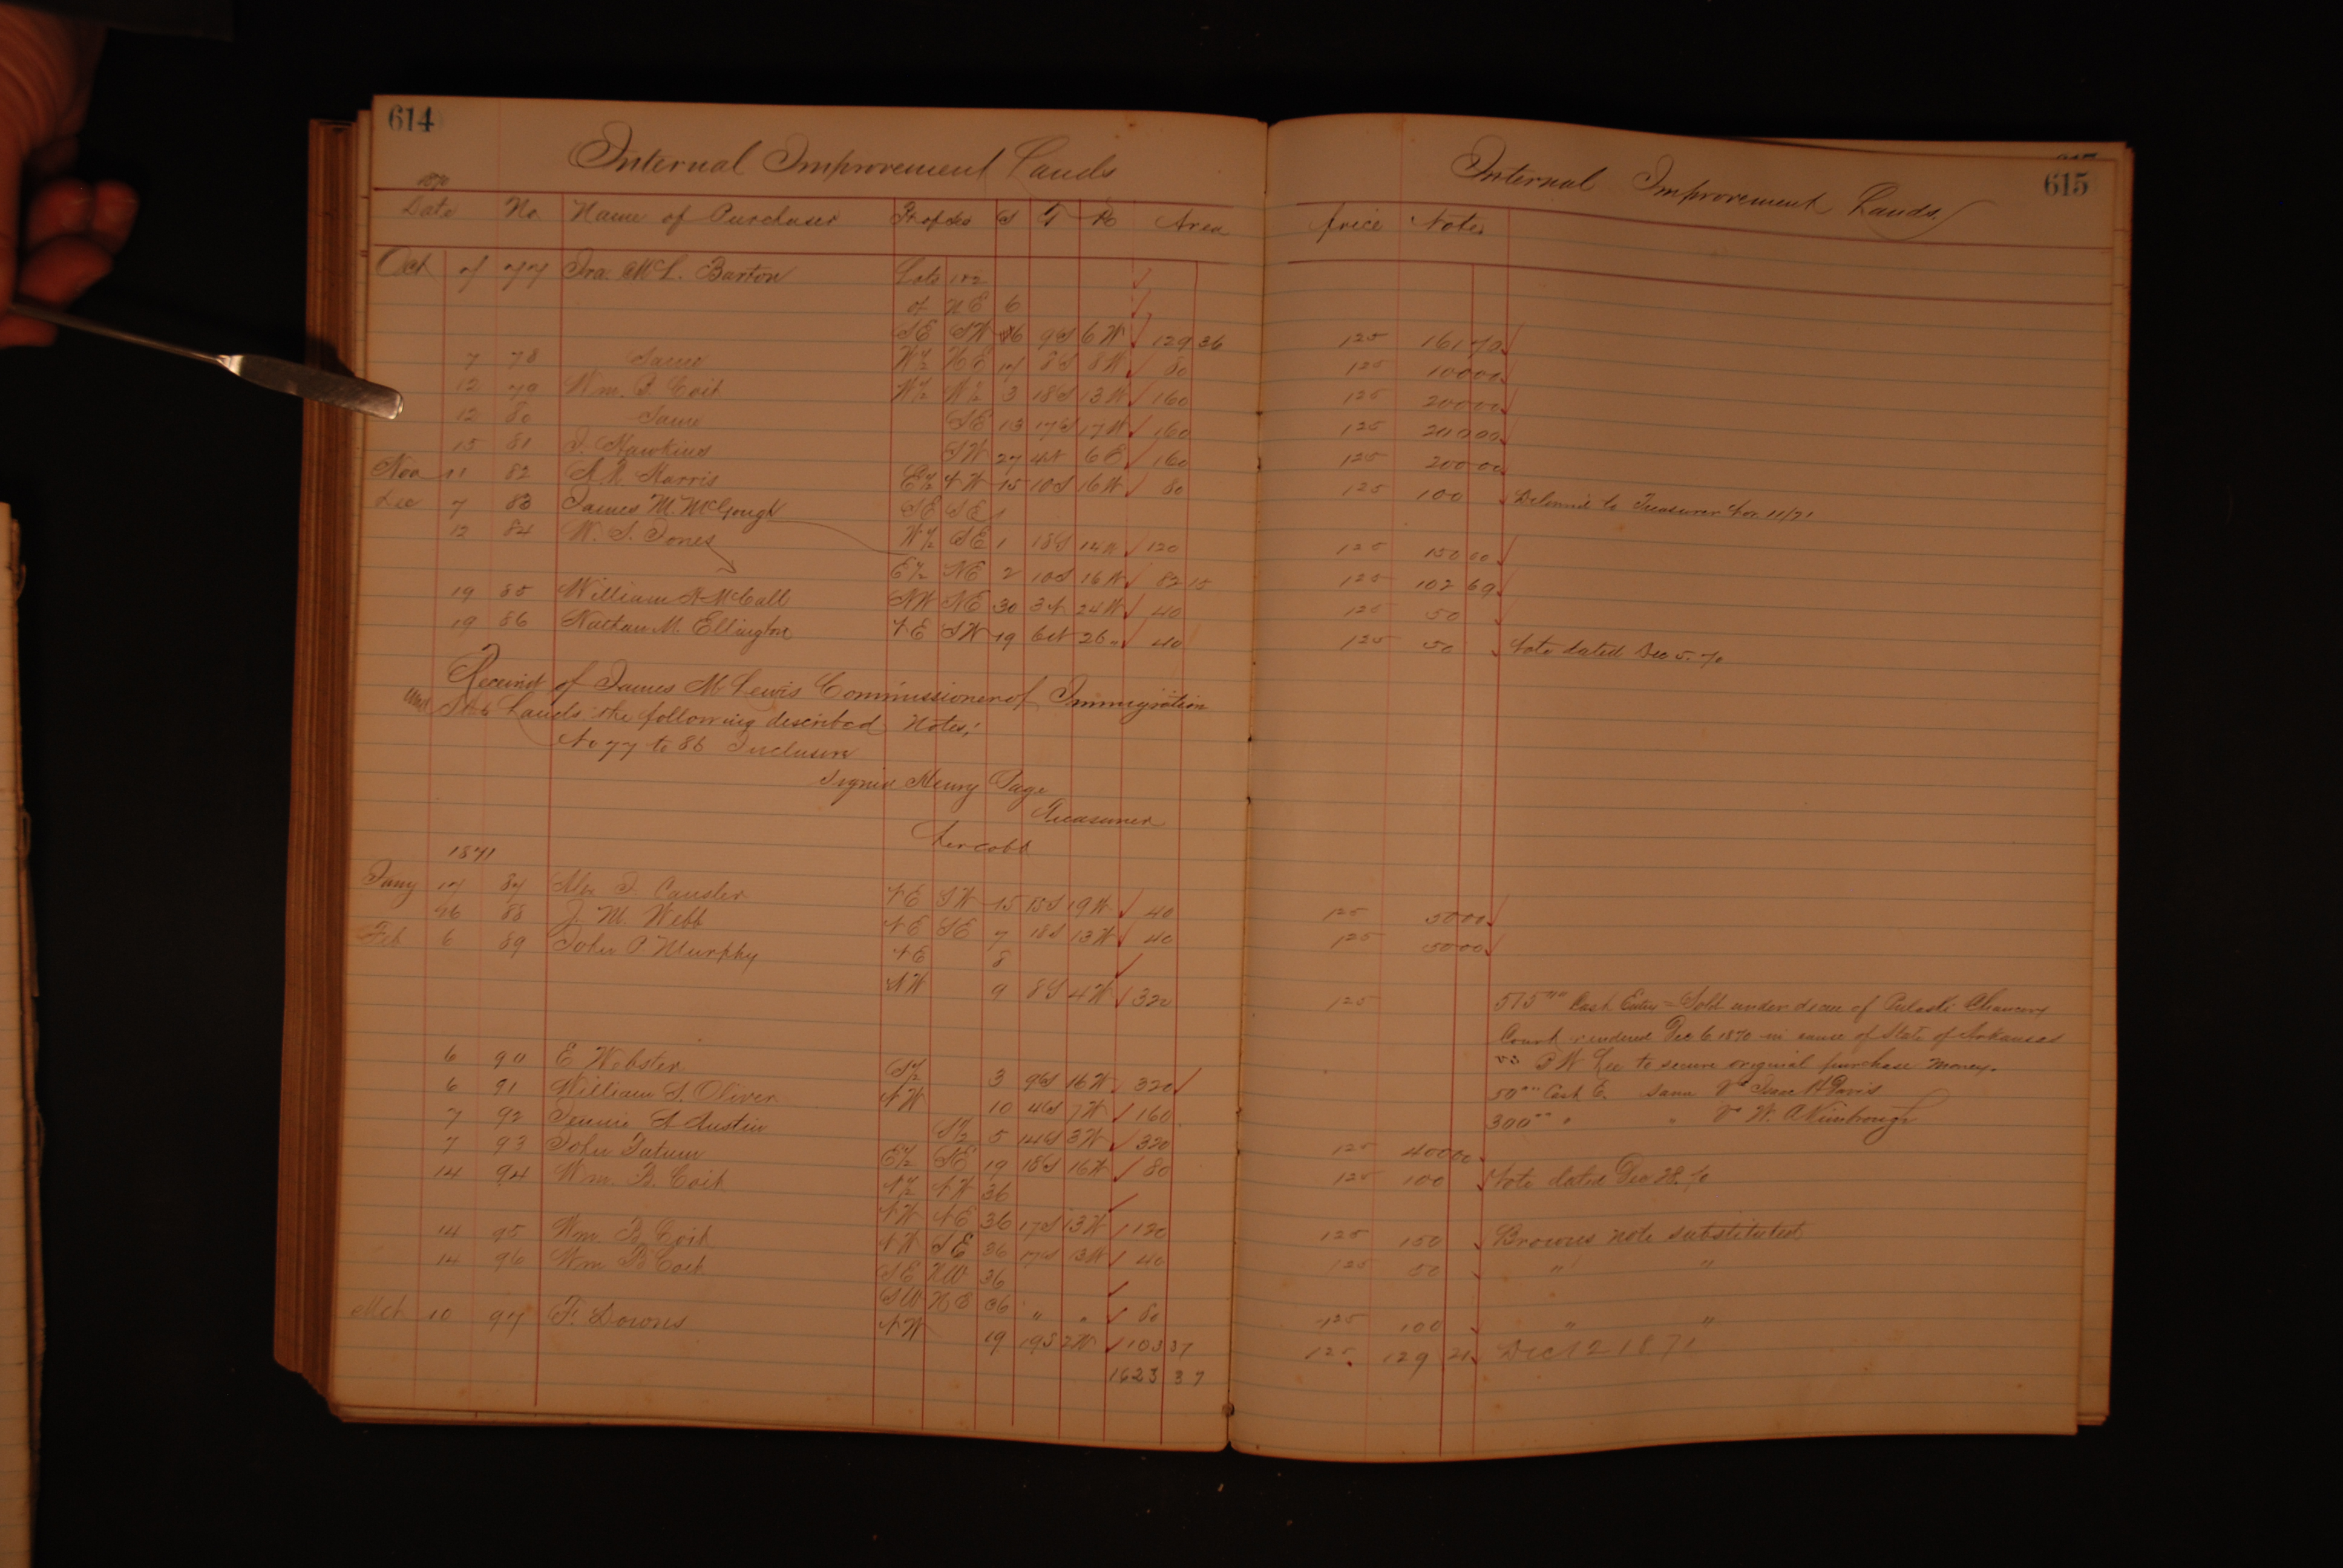 614
Internal Improvement Lands
1870
Date No. Name of Purchaser Pt of Sec S T R Area
Oct 7 77 Ira McL. Barton Lots 1 & 2
of NE 6
SE SW 6 9S 6W 129 36
7 78 Same W½ NE 17 8S 8W 80
12 79 Wm. B. Coit W½ W½ 3 18S 13W 160
12 80 Same SE 13 17S 17W 160
15 81 J. Hawkins SW 27 4N 6E 160
Nov 11 82 Harris E½ NW 15 10S 16W 80
Dec 7 83 James M. McGough SE SE 1
12 84 W. S. Jones W½ SE 1 18S 14W 120
E½ NE 2 10S 16W 82 15
19 85 William A McCall NW NE 30 3N 24W 40
19 86 Nathan M. Ellington NE SW 19 6N 26 " 40
Received of James M Lewis Commissioner of Immigration
and State Lands the following described Notes;
No 77 to 86 Inclusive
Signed Henry Page
Treasurer
1871
Jany 17 87 Alex J Causler NE SW 15 15S 19W 40
26 88 J. M. Webb NE SE 7 18S 13W 40
Feb 6 89 John P Murphy NE 8
NW 9 8S 4W 320
6 90 E Webster S½ 3 9S 16W 320
6 91 William S. Oliver NW 10 4S 7W 160
7 92 Jennie A Austin S½ 5 14S 3W 320
7 93 John Tatum E½ SE 19 18S 16W 80
14 94 Wm. B. Coit N½ NW 36
NW NE 36 17S 13W 120
14 95 Wm B Coit NW SE 36 17S 13W 40
14 96 Wm B Coit SE NW 36
SW NE 36 " " 80
Mch 10 97 F. Downs NW 19 19S 2W 103 37
1623 37
615
Internal Improvement Lands
Price Notes
125 161 70
125 100 00
125 200 00
125 200 00
125 200 00
125 100 Delivered to Treasurer Nov 11/71
125 150 00
125 102 69
125 50
125 50 Note dated Dec 5. 70
125 50 00
125 50 00
125 515 00 Cash Entry = Sold under decree of Pulaski Chancery
Court rendered Dec 6 1870 in cause of State of Arkansas
vs B W Lee to secure original purchase money.
50 00 Cash E. same vs Isaac H Davis
300 00 " " vs W. A Kimbrough
125 400 00
125 100 Note dated Dec 28. 70
125 150 Browns note substituted
125 50 " "
125 100 " "
125 129 21 Dec 12 1871